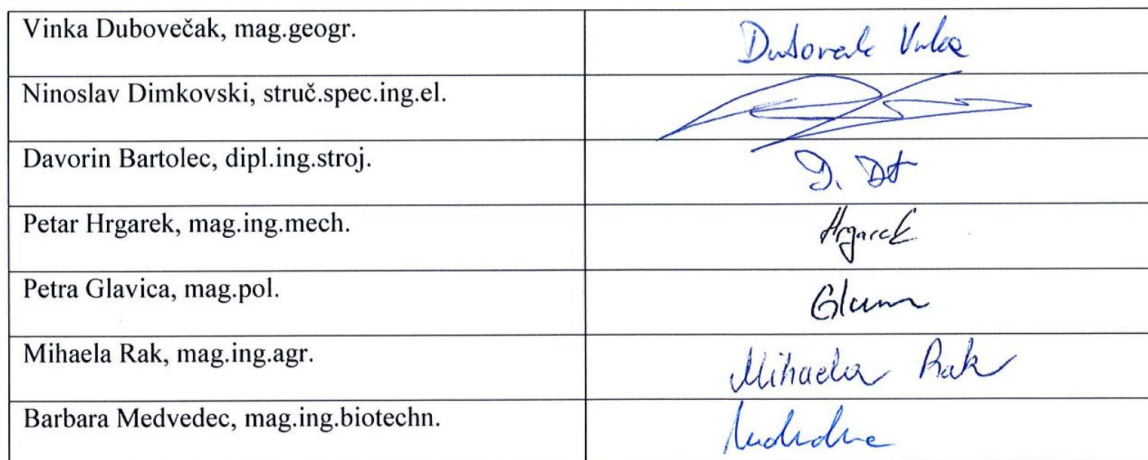 Vinka Dubovečak, mag.geogr.
Ninoslav Dimkovski, struč.spec.ing.el.
Davorin Bartolec, dipl.ing.stroj.
Petar Hrgarek, mag.ing.mech.
Hrgarek
Petra Glavica, mag.pol.
Mihaela Rak, mag.ing.agr.
Mihaela Rak
Barbara Medvedec, mag.ing.biotechn.